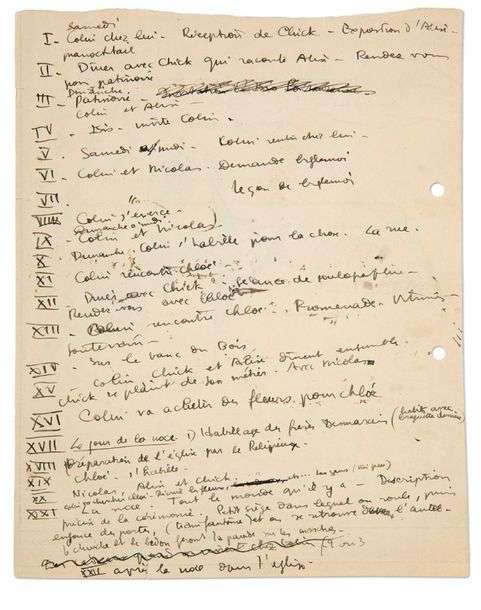 Samedi
I - Colin chez lui - Réception de Chick - Exposition d'Alise -
pianocktail
II - Dîner avec Chick qui raconte Alise - Rendez vous
pour patinoire
Dimanche
III - Patinoire -
Colin et Alise -
IV - Isis - invite Colin -
V - Samedi midi - Colin rentre chez lui -
VI - Colin et Nicolas - Demande biglemoi
VII - " leçon de biglemoi
VIII - Colin s'exerce -
Dimanche midi
IX - Colin et Nicolas)
X - Dimanche. Colin s'habille pour la chose. La rue.
XI Colin rencontre chloé
XII Dîner avec Chick -
Rendez vous avec Chloé -
XIII - Colin rencontre chloé. Promenade - Vitrines -
souterrain -
XIV - Sur le banc du Bois -
XV Colin, Chick et Alise dînent ensemble.
Chick se plaint de son métier. Avec Nicolas
XVI Colin va acheter des fleurs pour chloé
XVII Le jour de la noce. D) Habillage des frères Demarais (
XVIII Préparation de l'église par le Religieux -
XIX Chloé s'habille -
XX Nicolas Alise et Chick
XXI La noce. Tout le monde qu'il y a - Description
précise de la cérémonie. Petit siège dans lequel on roule, puis
et on se retrouve l'autel -
le chuiche et le bedon font la parade sur les marches.
XXII après la noce dans l'église -